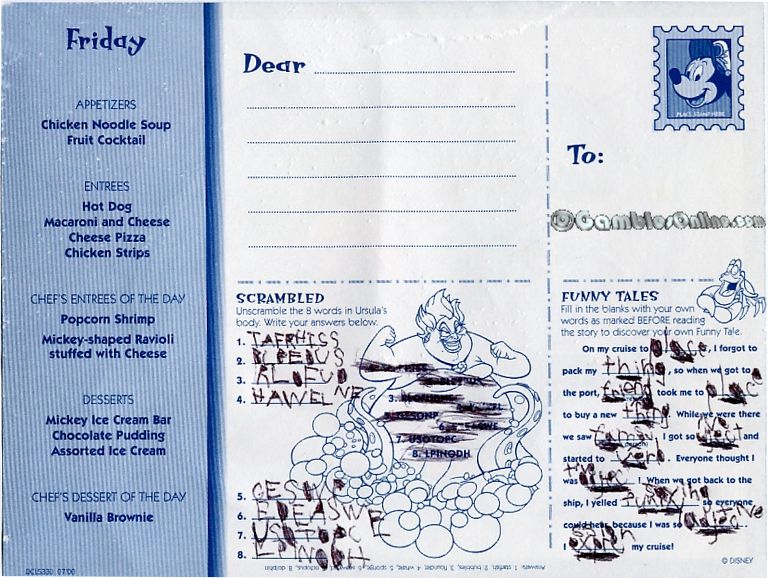 Friday
APPETIZERS
Chicken Noodle Soup
Fruit Cocktail
ENTREES
Hot Dog
Macaroni and Cheese
Cheese Pizza
Chicken Strips
CHEF'S ENTREES OF THE DAY
Popcorn Shrimp
Mickey-shaped Ravioli
stuffed with Cheese
DESSERTS
Mickey Ice Cream Bar
Chocolate Pudding
Assorted Ice Cream
CHEF'S DESSERT OF THE DAY
Vanilla Brownie
DCL5330 07/00
Dear
PLACE STAMP HERE
To:
©GamblersOnline.com
SCRAMBLED
Unscramble the 8 words in Ursula's
body. Write your answers below.
1.
2.
3.
4. HAWELNE
3.
6.
7. USOTOPC
8. LPINODH
5.
6.
7.
8.
Answers: 1. starfish, 2. bubbles, 3. flounder, 4. whale, 5. sponge, 6. seaweed, 7. octopus, 8. dolphin
FUNNY TALES
Fill in the blanks with your own
words as marked BEFORE reading
the story to discover your own Funny Tale.
On my cruise to place, I forgot to
pack my thing, so when we got to
the port, friend took me to place
to buy a new thing While we were there
we saw I got so and
started to verb. Everyone thought I
was ! When we got back to the
ship, I yelled so everyone
could hear, because I was so
I my cruise!
© DISNEY